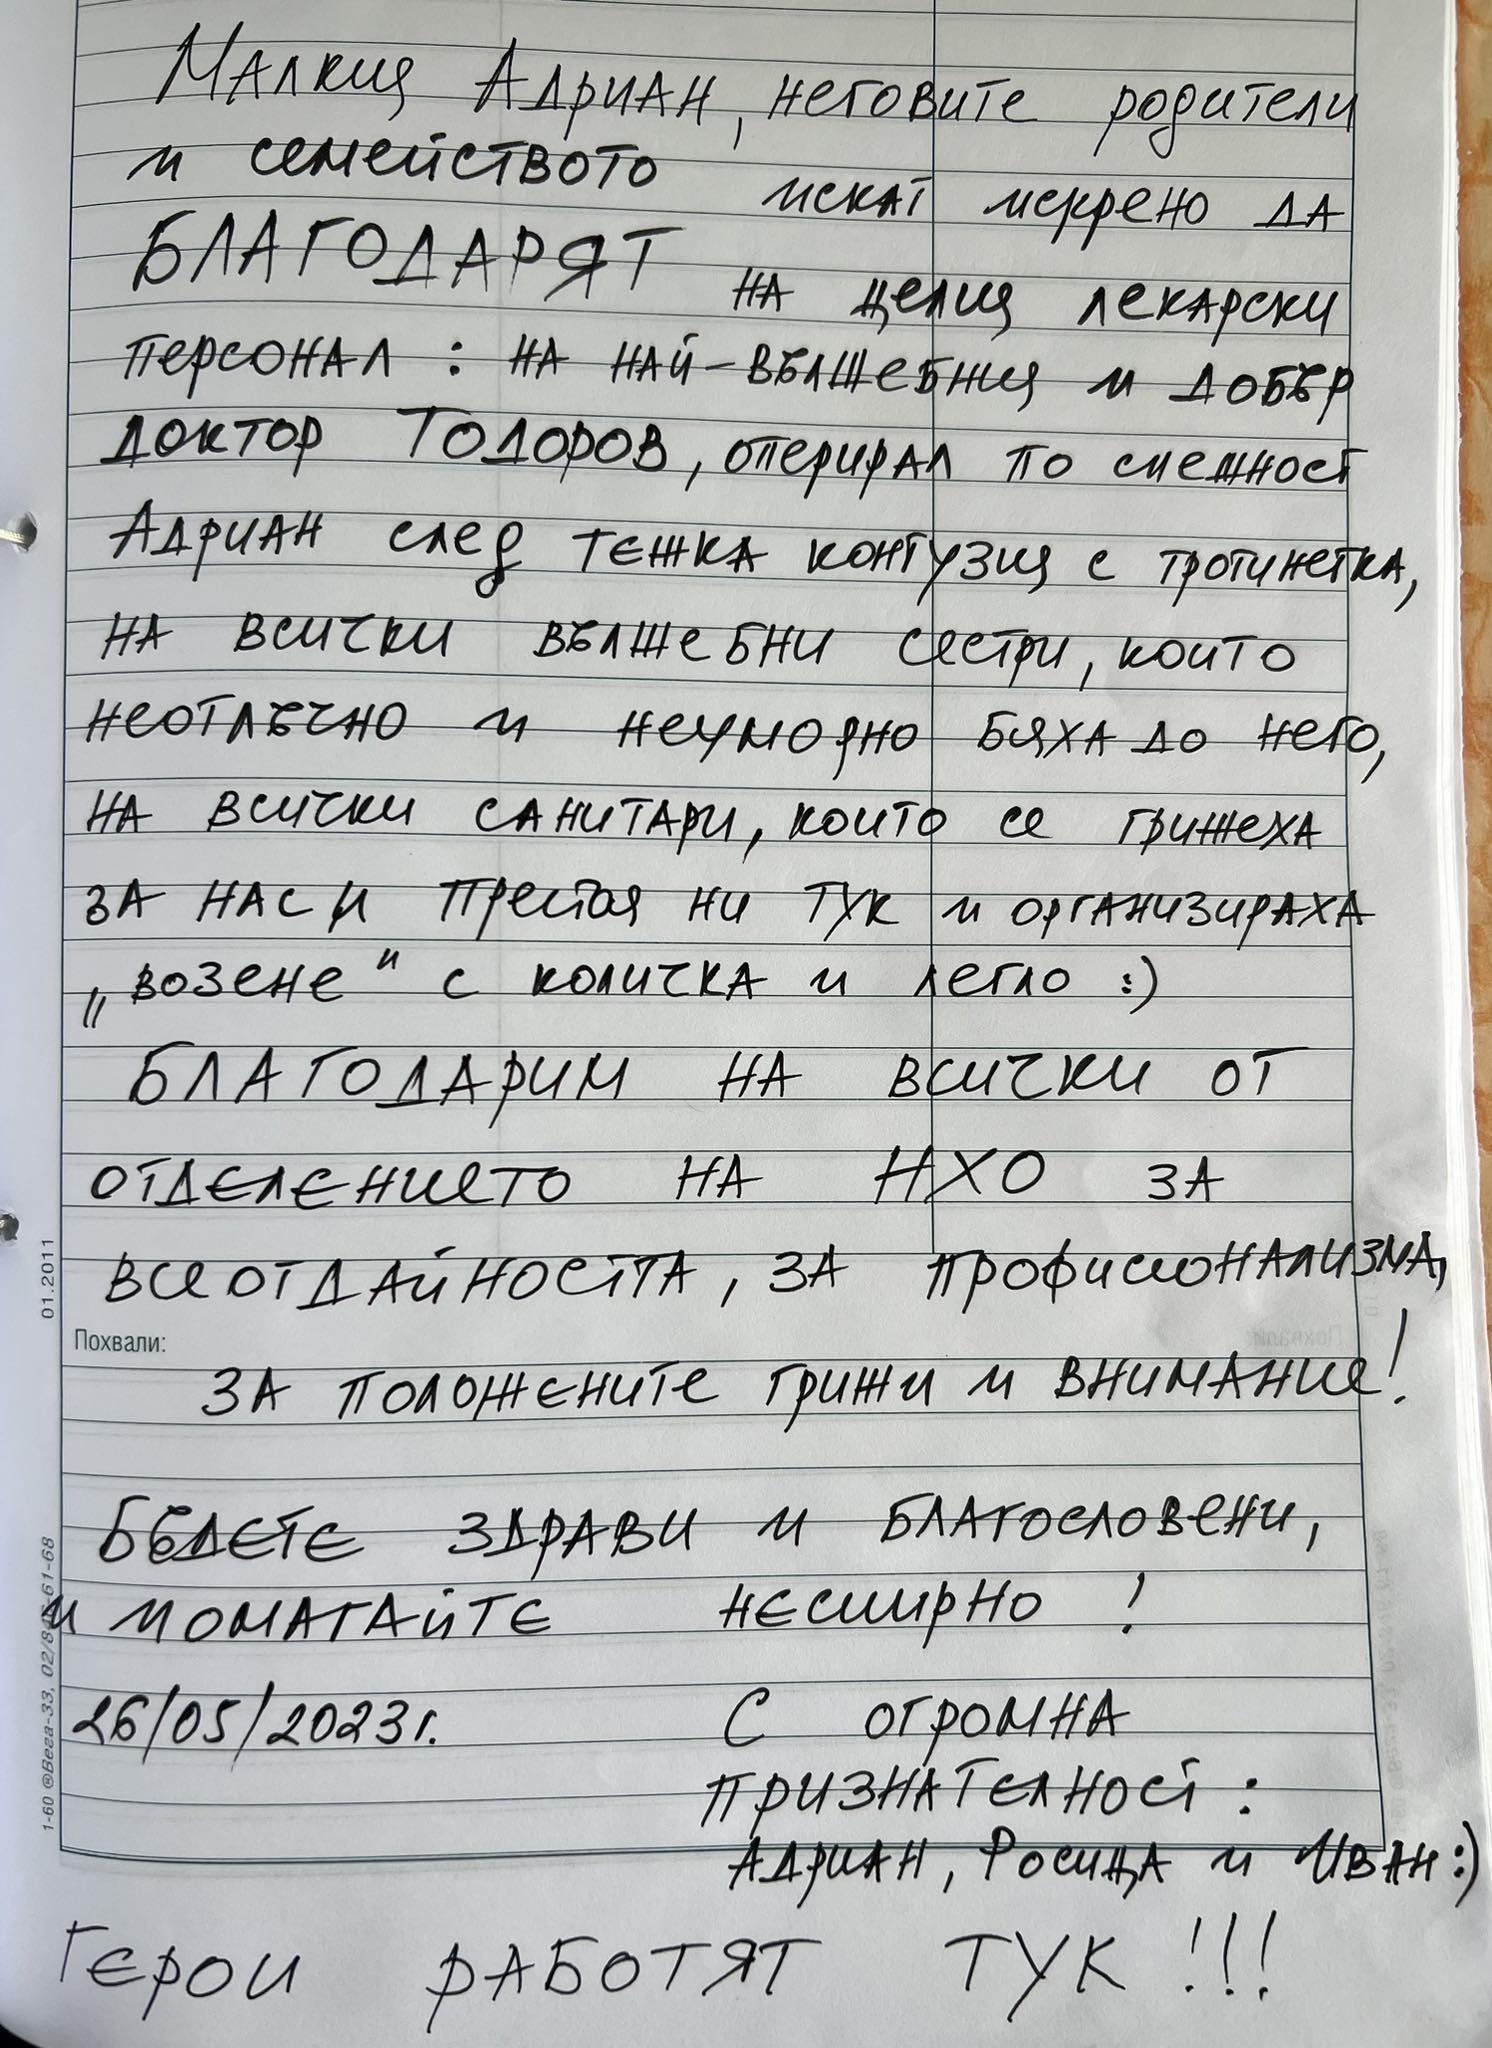 Малкия Адриан, неговите родители
и семейството искат искрено да
БЛАГОДАРЯТ на целия лекарски
персонал: на най-вълшебния и добър
доктор Тодоров, оперирал по спешност
Адриан след тежка контузия с тротинетка,
на всички вълшебни сестри, които
неотлъчно и неуморно бяха до него,
на всички санитари, които се грижеха
за нас и престоя ни тук и организираха
„возене" с количка и легло :)
БЛАГОДАРИМ на всички от
отделението на НХО за
всеотдайността, за професионализма,
Похвали:
за положените грижи и внимание!
Бъдете здрави и благословени,
и помагайте неспирно!
26/05/2023г. С огромна
признателност:
Адриан, Росица и Иван :)
Герои работят тук!!!
01.2011
1-60 ®Вега-33, 02/8
61-68